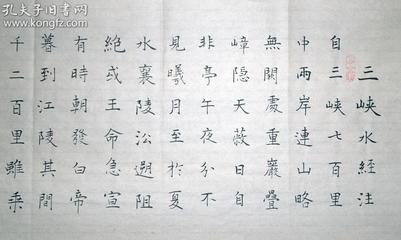 孔夫子旧书网
www.kongfz.com
三峽水經注
自三峽七百里
中兩岸連山略
無闕處重巖疊
嶂隐天蔽日自
非亭午夜分不
見曦月至於夏
水襄陵沿遡阻
絶或王命急宣
有時朝發白帝
暮到江陵其間
千二百里雖乘